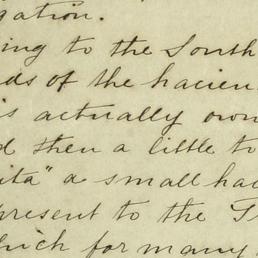 gation.
ing to the South
ds of the hacien
is actually own
d then a little to
ita" a small hac
present to the T
which for many